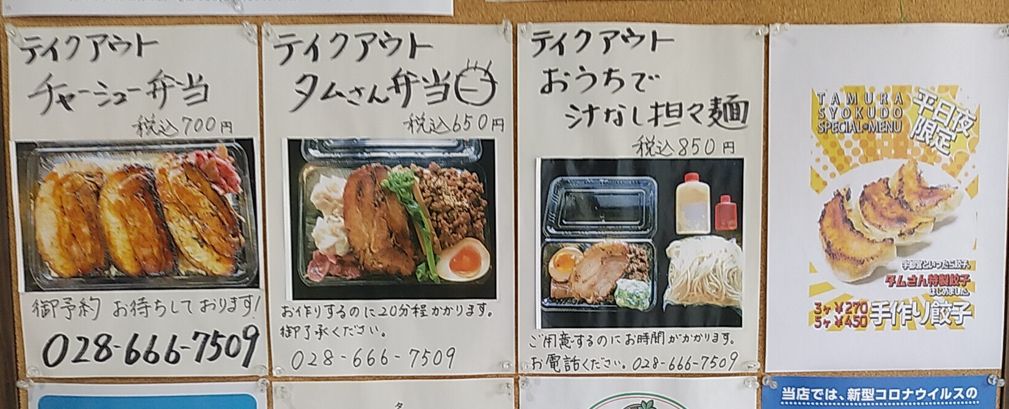 テイクアウト
チャーシュー弁当
税込700円
御予約 お待ちしております!
028-666-7509
テイクアウト
タムさん弁当
税込650円
お作りするのに20分程かかります。
御了承ください。
028-666-7509
テイクアウト
おうちで
汁なし担々麺
税込850円
ご用意するのにお時間がかかります。
お電話ください。028-666-7509
TAMURA
SYOKUDO
SPECIAL★MENU
平日夜
限定
宇都宮といったら餃子、
タムさん特製餃子
はじめました。
3ヶ¥270
5ヶ¥450
手作り餃子
当店では、新型コロナウイルスの